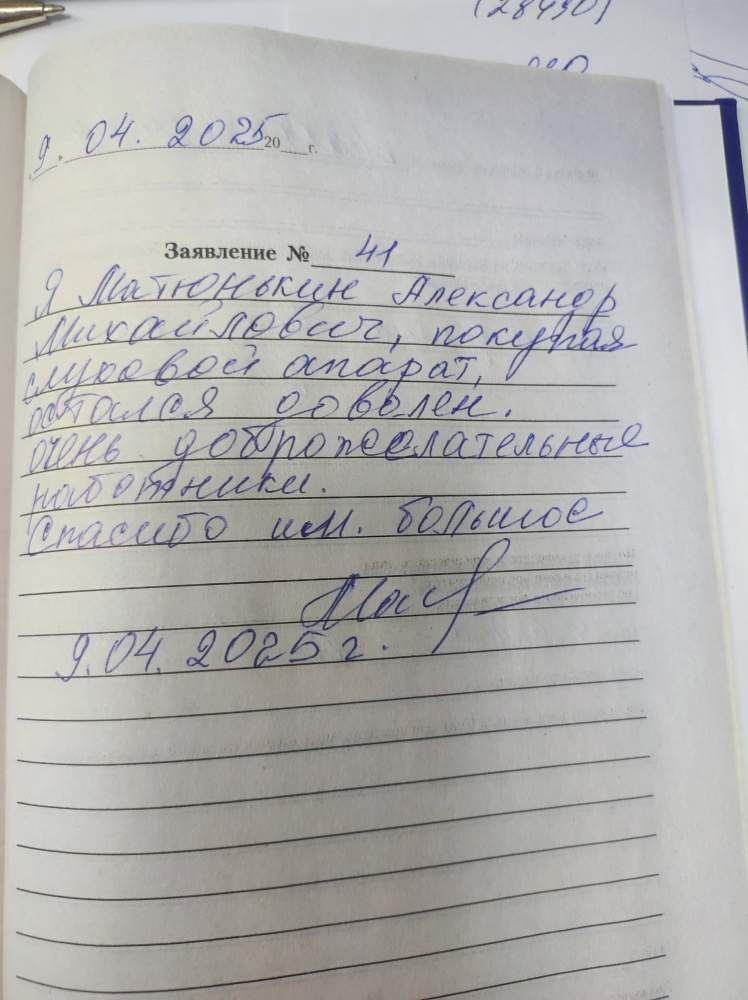 (28490)
9. 04. 2025 20 г.
Заявление № 41
Я Матюнькин Александр
Михайлович, покупая
слуховой апарат,
остался доволен.
очень доброжелательные
работники.
Спасибо им. большое
9.04. 2025 г.